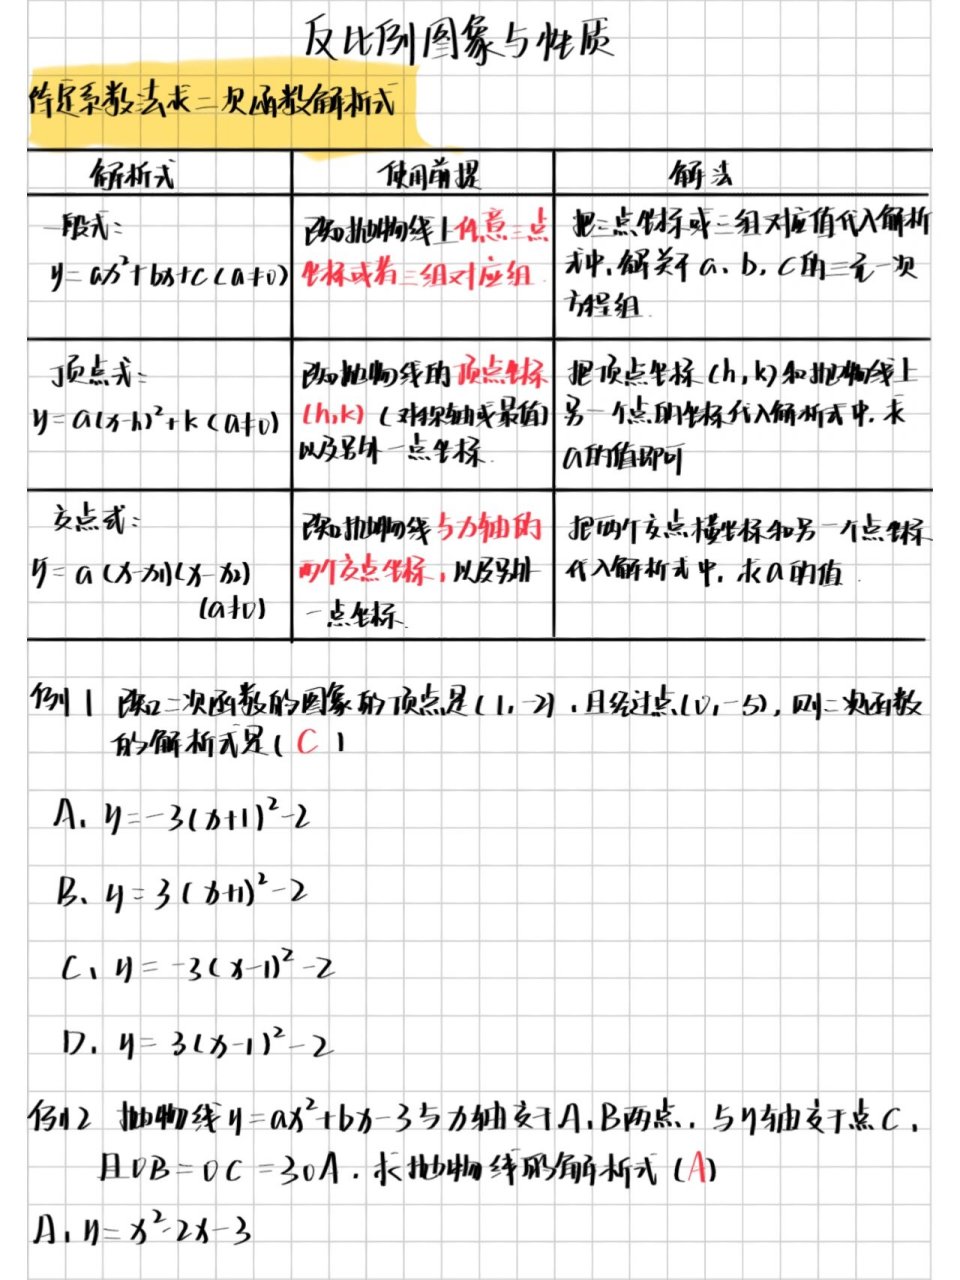 反比例图象与性质
待定系数法求二次函数解析式
解析式 使用前提 解法
一般式：
y=ax²+bx+c(a≠0)
已知抛物线上任意三点
坐标或若三组对应组
把三点坐标或三组对应值代入解析
式中，解关于a、b、c的三元一次
方程组.
顶点式：
y=a(x-h)²+k(a≠0)
已知抛物线的顶点坐标
(h,k)（对称轴或最值）
以及另外一点坐标.
把顶点坐标(h,k)和抛物线上
另一个点的坐标代入解析式中，求
a的值即可
交点式：
y=a(x-x1)(x-x2)
(a≠0)
已知抛物线与x轴的
两个交点坐标，以及另外
一点坐标.
把两个交点横坐标和另一个点坐标
代入解析式中，求a的值.
例1 已知二次函数的图象的顶点是(1,-2)，且经过点(0,-5)，则二次函数
的解析式是(C)
A、y=-3(x+1)²-2
B、y=3(x+1)²-2
C、y=-3(x-1)²-2
D、y=3(x-1)²-2
例2 抛物线y=ax²+bx-3与x轴交于A、B两点，与y轴交于点C，
且OB=OC=3OA．求抛物线的解析式(A)
A、y=x²-2x-3